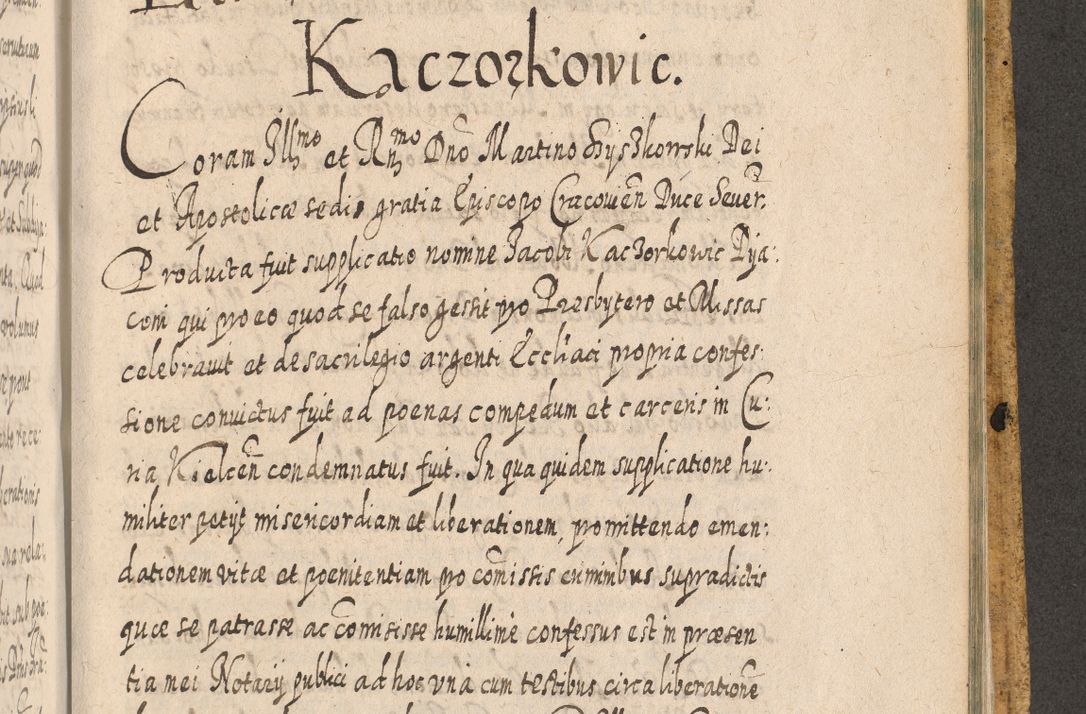 Kaczorkowic.
Coram Illmo et Rmo Dno Martino Szyszkowski Dei
et Apostolicæ sedis gratia Episcopo Cracovien Duce Sever.
Producta fuit supplicatio nomine Jacobi Kaczorkowic Dya:
coni qui pro eo quod se falso gessit pro Presbytero et Missas
celebravit et de sacrilegio argenti Eccliaci propria confes:
sione convictus fuit ad poenas compedum et carceris in Cu:
ria Kielcen condemnatus fuit. In qua quidem supplicatione hu:
militer petyt misericordiam et liberationem, promittendo emen:
dationem vitæ et poenitentiam pro comissis criminibus supradictis
quæ se patrasse ac comisisse humillime confessus est in præsen
tia mei Notarij publici ad hoc una cum testibus circa liberatione